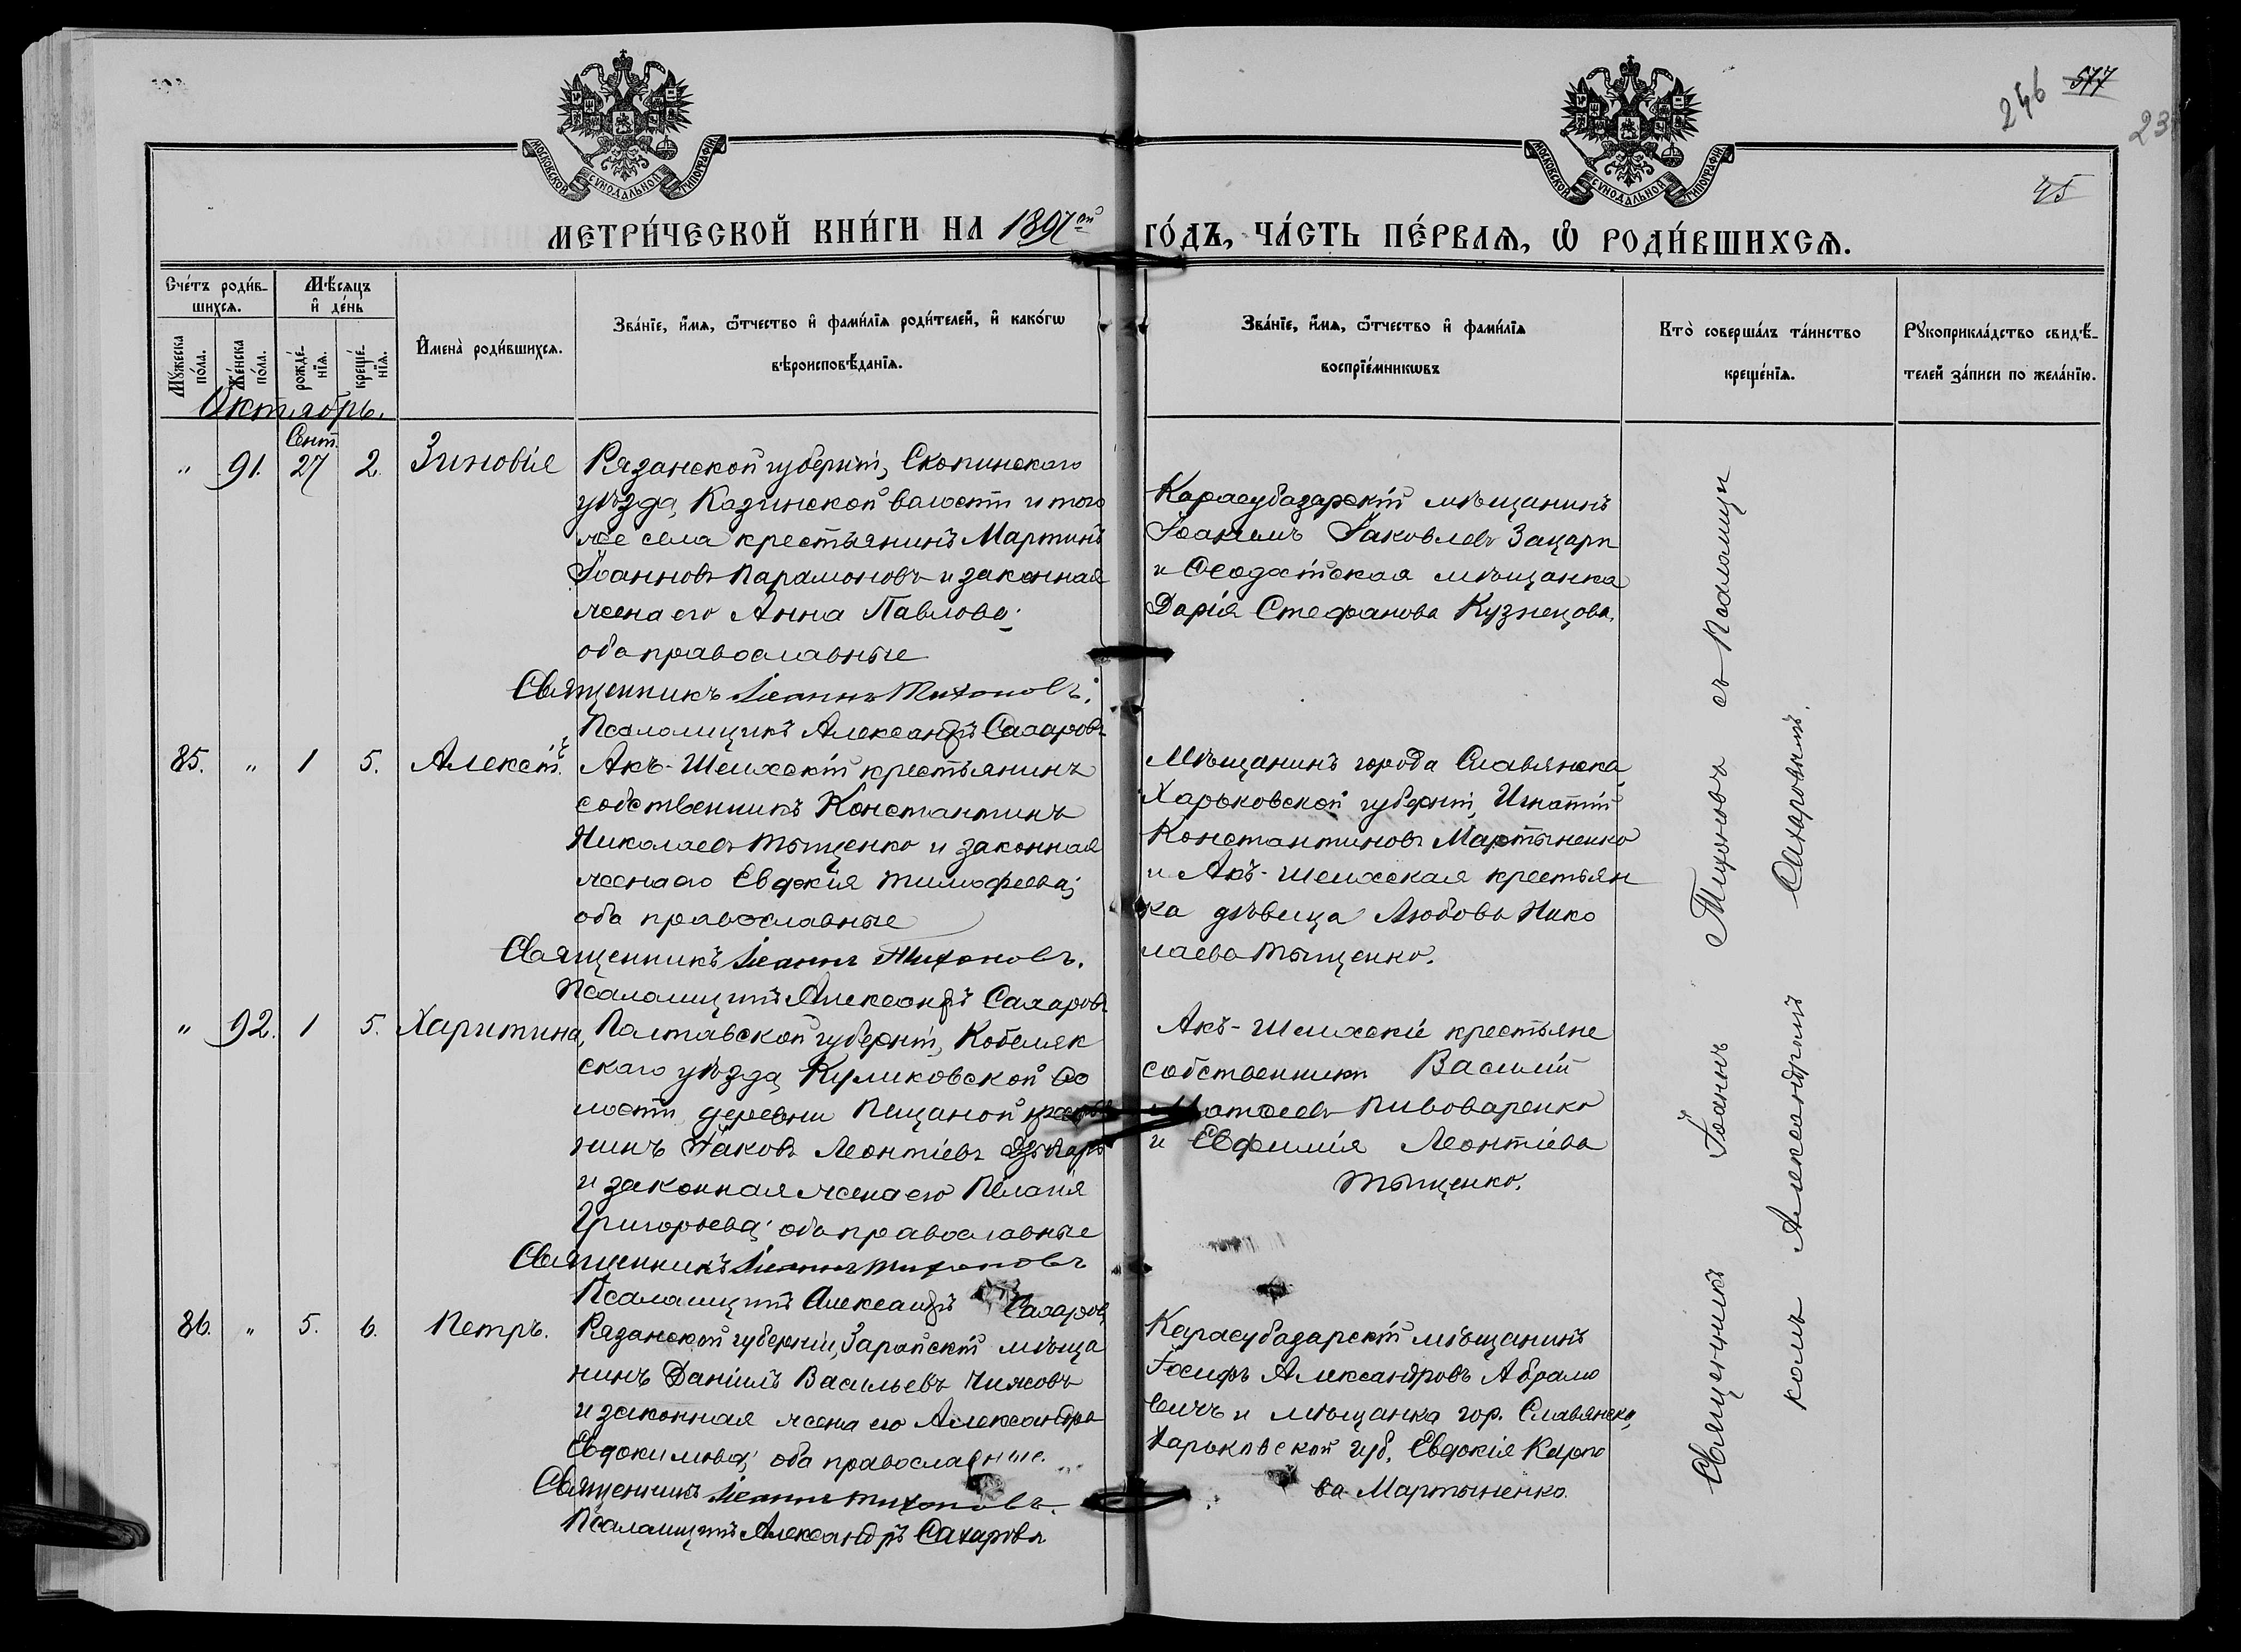 246 577
23
45
МОСКОВСКОЙ СУНОДАЛЬНОЙ ТИПОГРАФІИ
МОСКОВСКОЙ СУНОДАЛЬНОЙ ТИПОГРАФІИ
МЕТРИ́ЧЕСКОЙ КНИ́ГИ НА 1897ой ГО́ДЪ, ЧА́СТЬ ПЕ́РВАѦ, Ѡ҆ РОДИ́ВШИХСѦ.
Сче́тъ роди́в-
шихсѧ.
Мѣ́сѧцъ
и҆ де́нь
Мꙋ́жеска по́ла.
Же́нска по́ла.
рожде́-нїѧ.
креще́-нїѧ.
И҆мена̀ роди́вшихсѧ.
Зва́нїе, и҆́мѧ, ѻ҆́тчество и҆ фами́лїѧ роди́телей, и҆ како́гѡ
вѣроисповѣ́данїѧ.
Зва́нїе, и҆́мѧ, ѻ҆́тчество и҆ фами́лїѧ
воспрїе́мникѡвъ
Кто̀ соверша́лъ та́инство
креще́нїѧ.
Рꙋкоприкла́дство свидѣ́-
телей за́писи по жела́нїю.
Октябрь.
Сент.
„ 91. 27 2. Зиновія
Рязанской губерніи, Скопинскаго
уѣзда, Казинской волости и того
же села крестьянинъ Мартинъ
Іоанновъ Парамоновъ и законная
жена его Анна Павлова;
оба православные
Священникъ Іоаннъ Тихоновъ.
Псаломщикъ Александръ Сахаровъ
Карасубазарскій мѣщанинъ
Іоакимъ Іаковлевъ Зацарн
и Ѳеодосійская мѣщанка
Дарія Стефанова Кузнецова.
85. „ 1 5. Алексій.
Акъ-Шеихскій крестьянинъ
собственникъ Константинъ
Николаевъ Тыщенко и законная
жена его Евдокія Тимофеева;
оба православные
Священникъ Іоаннъ Тихоновъ.
Псаломщикъ Александръ Сахаровъ
Мѣщанинъ города Славянска
Харьковской губерніи, Игнатій
Константиновъ Мартыненко
и Акъ-Шеихская крестьян
ка дѣвица Любовь Нико
лаева Тыщенко.
„ 92. 1 5. Харитина,
Полтавской губерніи, Кобеляк
скаго уѣзда, Куликовской во
лости, деревни Пещаной крестья
нинъ Іаковъ Леонтіевъ
и законная жена его Пелагія
Григорьева; оба православные
Священникъ Іоаннъ Тихоновъ
Псаломщикъ Александръ Сахаровъ
Акъ-Шеихскіе крестьяне
собственники Василій
Матѳеевъ Пивоваренко
и Евфимія Леонтіева
Тыщенко.
86. „ 5. 6. Петръ.
Рязанской губерніи, Зарайскій мѣща
нинъ Даніилъ Васильевъ Чижовъ
и законная жена его Александра
Евдокимова; оба православные.
Священникъ Іоаннъ Тихоновъ.
Псаломщикъ Александръ Сахаровъ
Карасубазарскій мѣщанинъ
Іосифъ Александровъ Абрамо
вичъ и мѣщанка гор. Славянска,
Харьковской губ. Евдокія Карпо
ва Мартыненко.
Священникъ Іоаннъ Тихоновъ съ Псаломщи
комъ Александромъ Сахаровымъ.